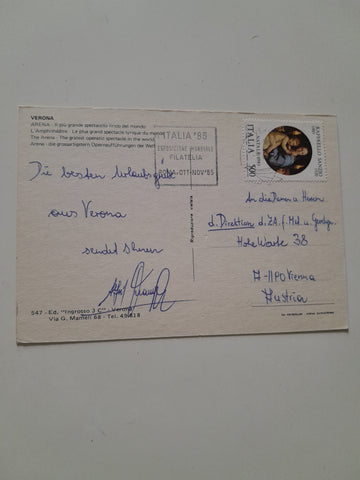 VERONA
ARENA - Il più grande spettacolo lirico del mondo
L'Amphithéâtre - Le plus grand spectacle lyrique du monde
The Arena - The gratest operatic spectacle in the world
Arena - die grossartigstern Opernaufführungen der Welt
ITALIA '85
ESPOSIZIONE MONDIALE
FILATELIA
ROMA-OTT-NOV '85
ITALIA 500
NATALE
RAFFAELLO SANZIO
Die besten Urlaubsgrüße
aus Verona
sendet Ihnen
An die Damen u. Herren
d. Direktion d. ZA. f. Met. u. Geodyn.
Hohe Warte 38
A-1190 Vienna
Austria
Riproduzione vietata
547 - Ed. "Ingrosso 3 C" - Verona
Via G. Mameli 68 - Tel. 49818